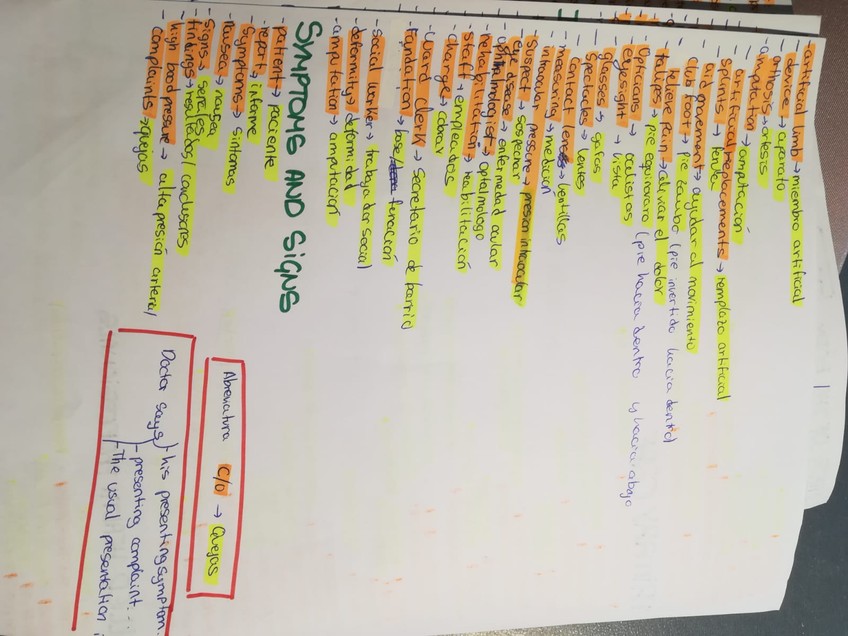 - artificial limb → miembro artificial
- device → aparato
- orthosis → ortesis
- amputation → amputación
- artificial replacements → remplazo artificial
- splints → férula
- aid movement → ayudar al movimiento
- Club foot → pie zambo (pie invertido hacia dentro)
- relieve pain → aliviar el dolor
- talipes → pie equinovaro (pie hacia dentro y hacia abajo
- opticians → oculistas
- eyesight → vista
- glasses → gafas
- spectacles → lentes
- contact lenses → lentillas
- measuring → medición
- intraocular pressure → presión intraocular
- suspect → sospechar
- eye disease → enfermedad ocular
- ophthalmologist → oftalmologo
- rehabilitation → reabilitación
- staff → empleados
- charge → cobrar
- Ward Clerk → secretario de barrio
- Foundation → base/ funcación
- social worker → trabajador social
- deformity → deformidad
- amputation → amputación
SYMPTOMS AND SIGNS
- patient → paciente
- report → informe
- symptoms → síntomas
- nausea → nausea
- signs → señales
- findings → resultados/conclusiones
- high blood pressure → alta presión arterial
- complaints → quejas
Abreviatura c/o → Quejas
Doctor says - his presenting symptom
- presenting complaint...
- The usual presentation